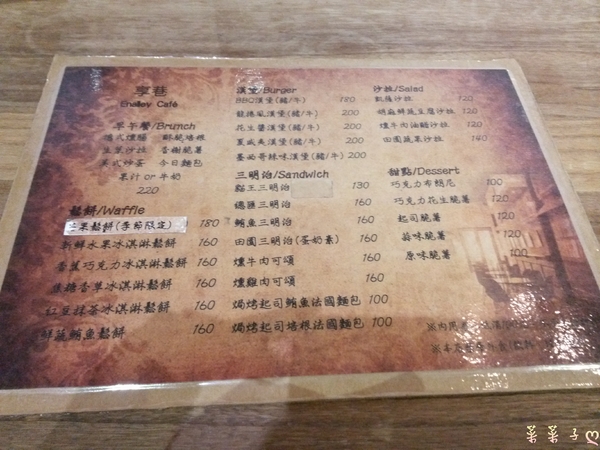 享巷
Enalley Café
早午餐/Brunch
德式燻腸 脆脆培根
生菜沙拉 香甜脆薯
美式炒蛋 今日麵包
果汁 or 牛奶
220
鬆餅/Waffle
芒果鬆餅(季節限定) 180
新鮮水果冰淇淋鬆餅 160
香蕉巧克力冰淇淋鬆餅 160
焦糖香草冰淇淋鬆餅 160
紅豆抹茶冰淇淋鬆餅 160
鮮蔬鮪魚鬆餅 160
漢堡/Burger
BBQ漢堡(豬/牛) 180
龍捲風漢堡(豬/牛) 200
花生醬漢堡(豬/牛) 200
夏威夷漢堡(豬/牛) 200
墨西哥辣味漢堡(豬/牛) 200
三明治/Sandwich
點王三明治 130
總匯三明治 160
鮪魚三明治 160
田園三明治(蛋奶素) 160
燻牛肉可頌 160
燻雞肉可頌 160
焗烤起司鮪魚法國麵包 100
焗烤起司培根法國麵包 100
沙拉/Salad
凱薩沙拉 120
胡麻鮮蔬豆腐沙拉 120
燻牛肉油醋沙拉 120
田園蔬果沙拉 140
甜點/Dessert
巧克力布朗尼 100
巧克力花生脆薯 120
起司脆薯 120
蒜味脆薯 120
原味脆薯 100
※內用
菜菜子